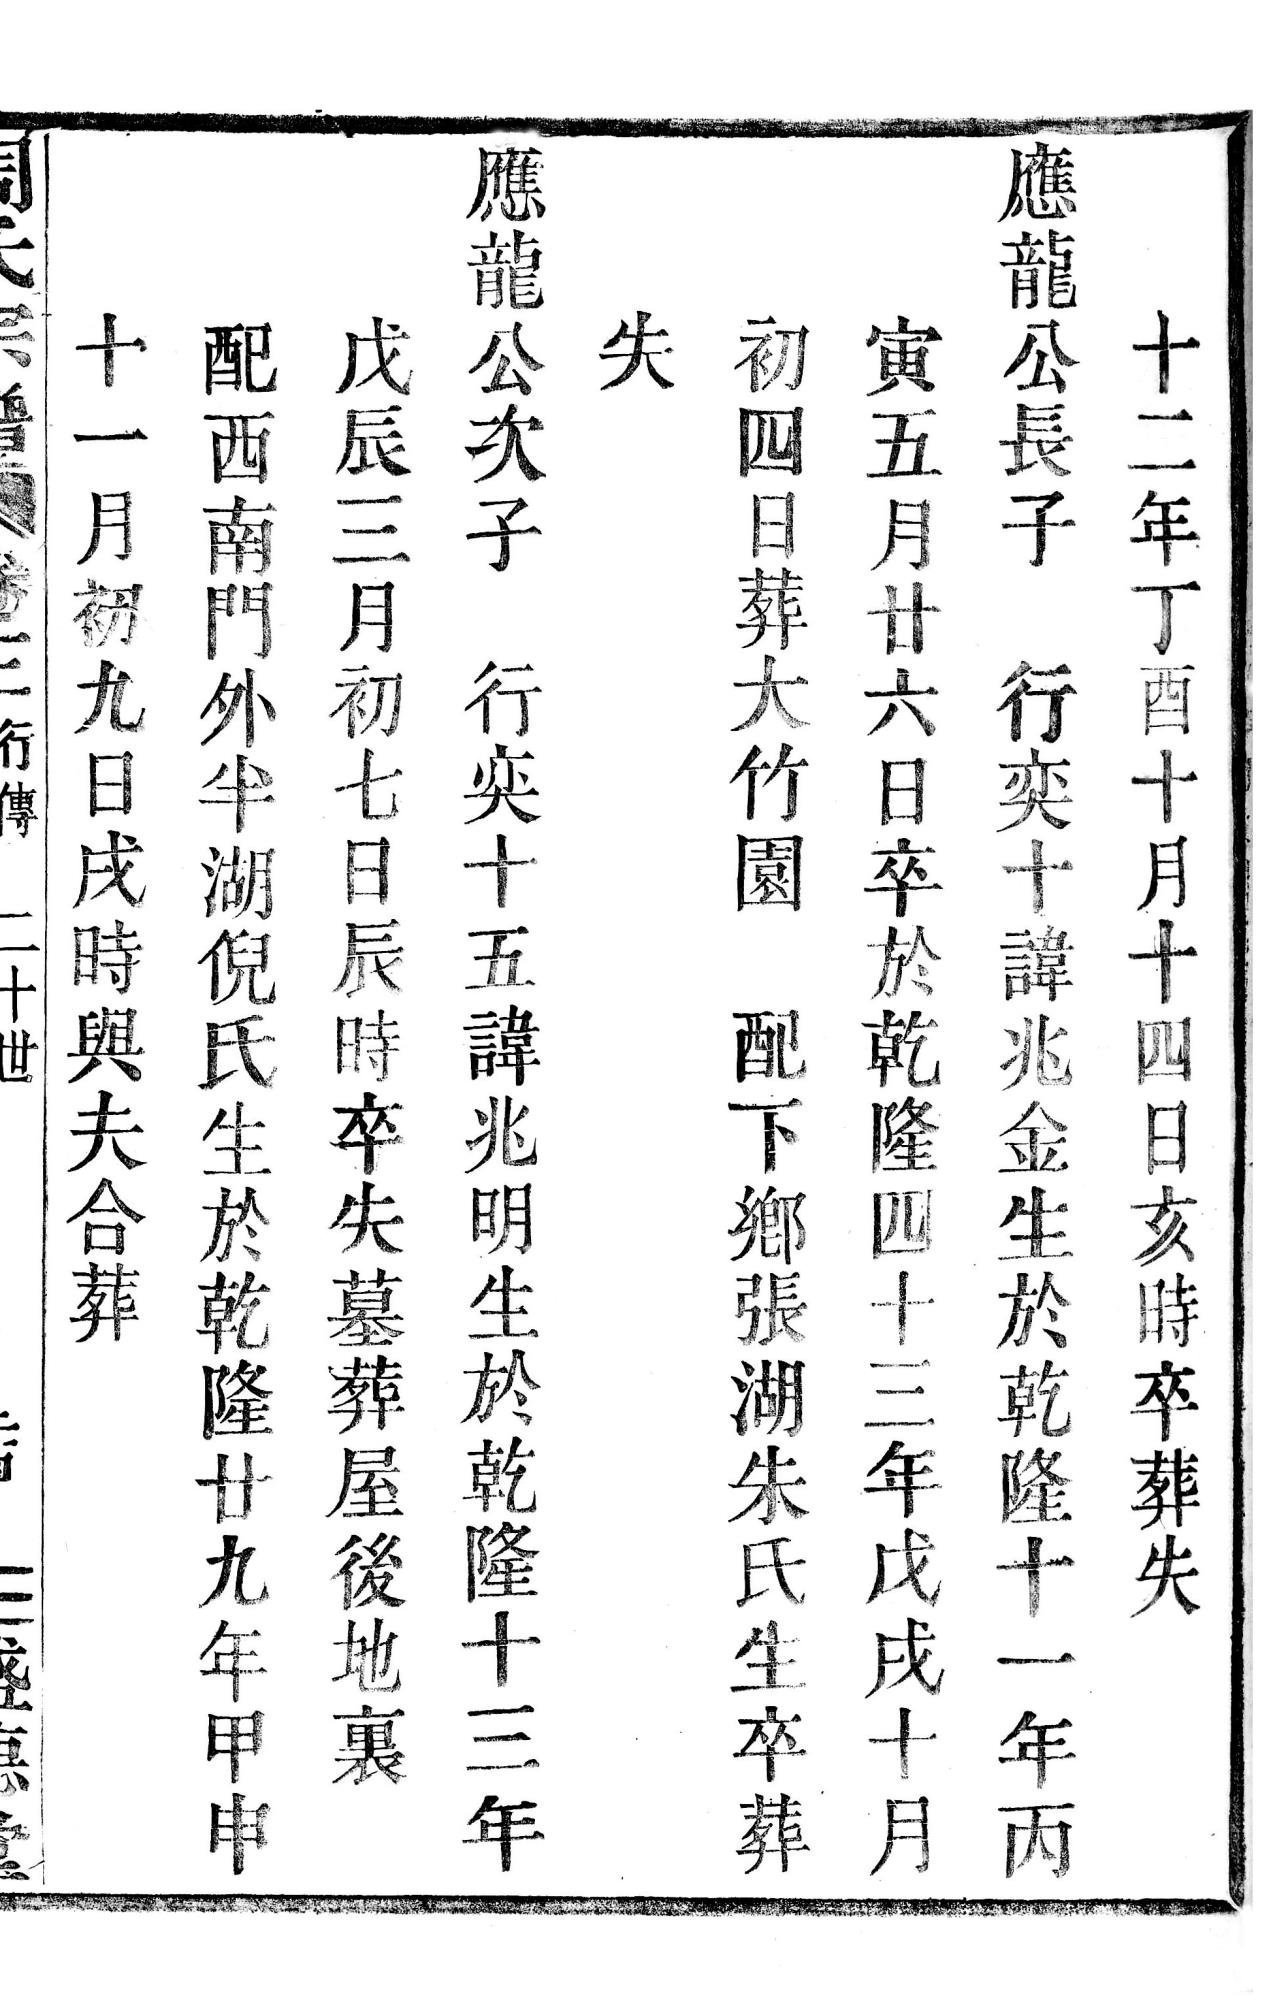 十二年丁酉十月十四日亥時卒葬失
應龍公長子　行奕十諱兆金生於乾隆十一年丙
寅五月廿六日卒於乾隆四十三年戊戌十月
初四日葬大竹園　配下鄉張湖朱氏生卒葬
失
應龍公次子　行奕十五諱兆明生於乾隆十三年
戊辰三月初七日辰時卒失墓葬屋後地裏
配西南門外半湖倪氏生於乾隆廿九年甲申
十一月初九日戌時與夫合葬
周氏宗譜　卷三行傳　二十世